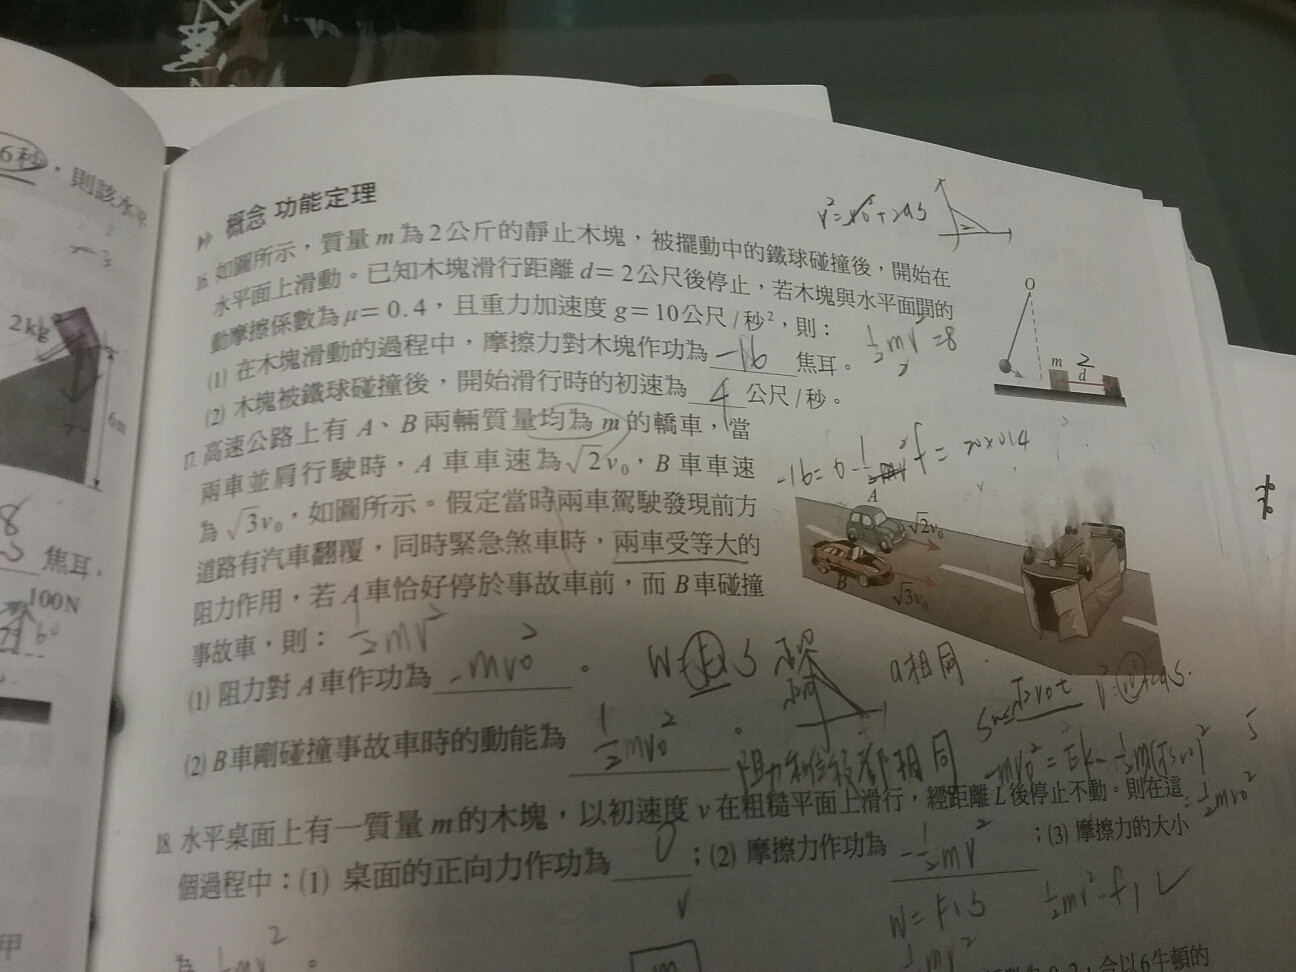 6秒，則該水平
2kg
6m
焦耳。
100N
60
▶▶ 概念 功能定理
v²=v₀²+2as
16. 如圖所示，質量 m 為 2 公斤的靜止木塊，被擺動中的鐵球碰撞後，開始在
水平面上滑動。已知木塊滑行距離 d= 2 公尺後停止，若木塊與水平面間的
動摩擦係數為 μ= 0.4，且重力加速度 g= 10 公尺/秒²，則：
(1) 在木塊滑動的過程中，摩擦力對木塊作功為 -16 焦耳。
(2) 木塊被鐵球碰撞後，開始滑行時的初速為 4 公尺/秒。
O
m
2
d
17. 高速公路上有 A、B 兩輛質量均為 m 的轎車，當
兩車並肩行駛時，A 車車速為 √2v₀，B 車車速
為 √3v₀，如圖所示。假定當時兩車駕駛發現前方
道路有汽車翻覆，同時緊急煞車時，兩車受等大的
阻力作用，若 A 車恰好停於事故車前，而 B 車碰撞
事故車，則：
½mv²
(1) 阻力對 A 車作功為 -mv₀² 。
(2) B 車剛碰撞事故車時的動能為 ½mv₀² 。
-16=0-½mv²
f= 20×0.4
A
√2v₀
B
√3v₀
a相同
18. 水平桌面上有一質量 m 的木塊，以初速度 v 在粗糙平面上滑行，經距離 L 後停止不動。則在這
個過程中：(1) 桌面的正向力作功為 0 ；(2) 摩擦力作功為 -½mv² ；(3) 摩擦力的大小
為
6牛頓的